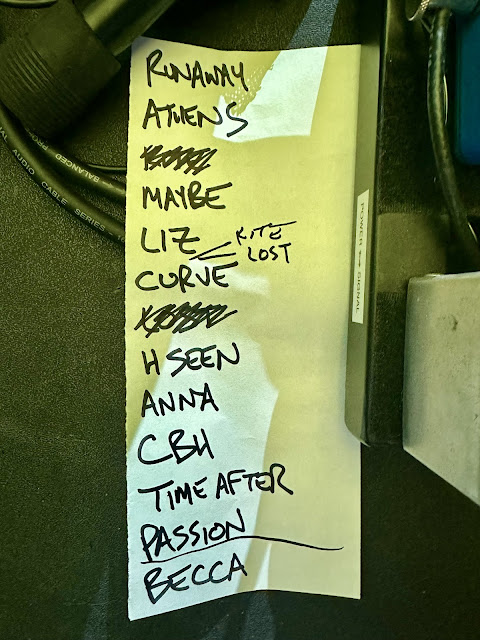 RUNAWAY
ATHENS
MAYBE
LIZ
KITE
LOST
CURVE
H SEEN
ANNA
CBH
TIME AFTER
PASSION
BECCA
POWER SIGNAL
BALANCED PRO
AUDIO CABLE SERIES